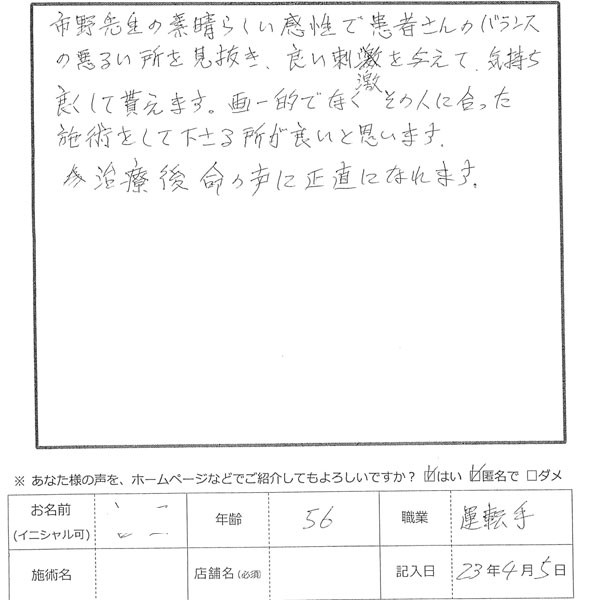 市野先生の素晴らしい感性で患者さんのバランス
の悪るい所を見抜き、良い刺激を与えて、気持ち
良くして貰えます。画一的で無く その人に合った
施術をして下さる所が良いと思います。
治療後 命の声に正直になれます。
※ あなた様の声を、ホームページなどでご紹介してもよろしいですか？ ☑はい ☑匿名で □ダメ
お名前
(イニシャル可)
年齢
56
職業
運転手
施術名
店舗名(必須)
記入日
23年4月5日